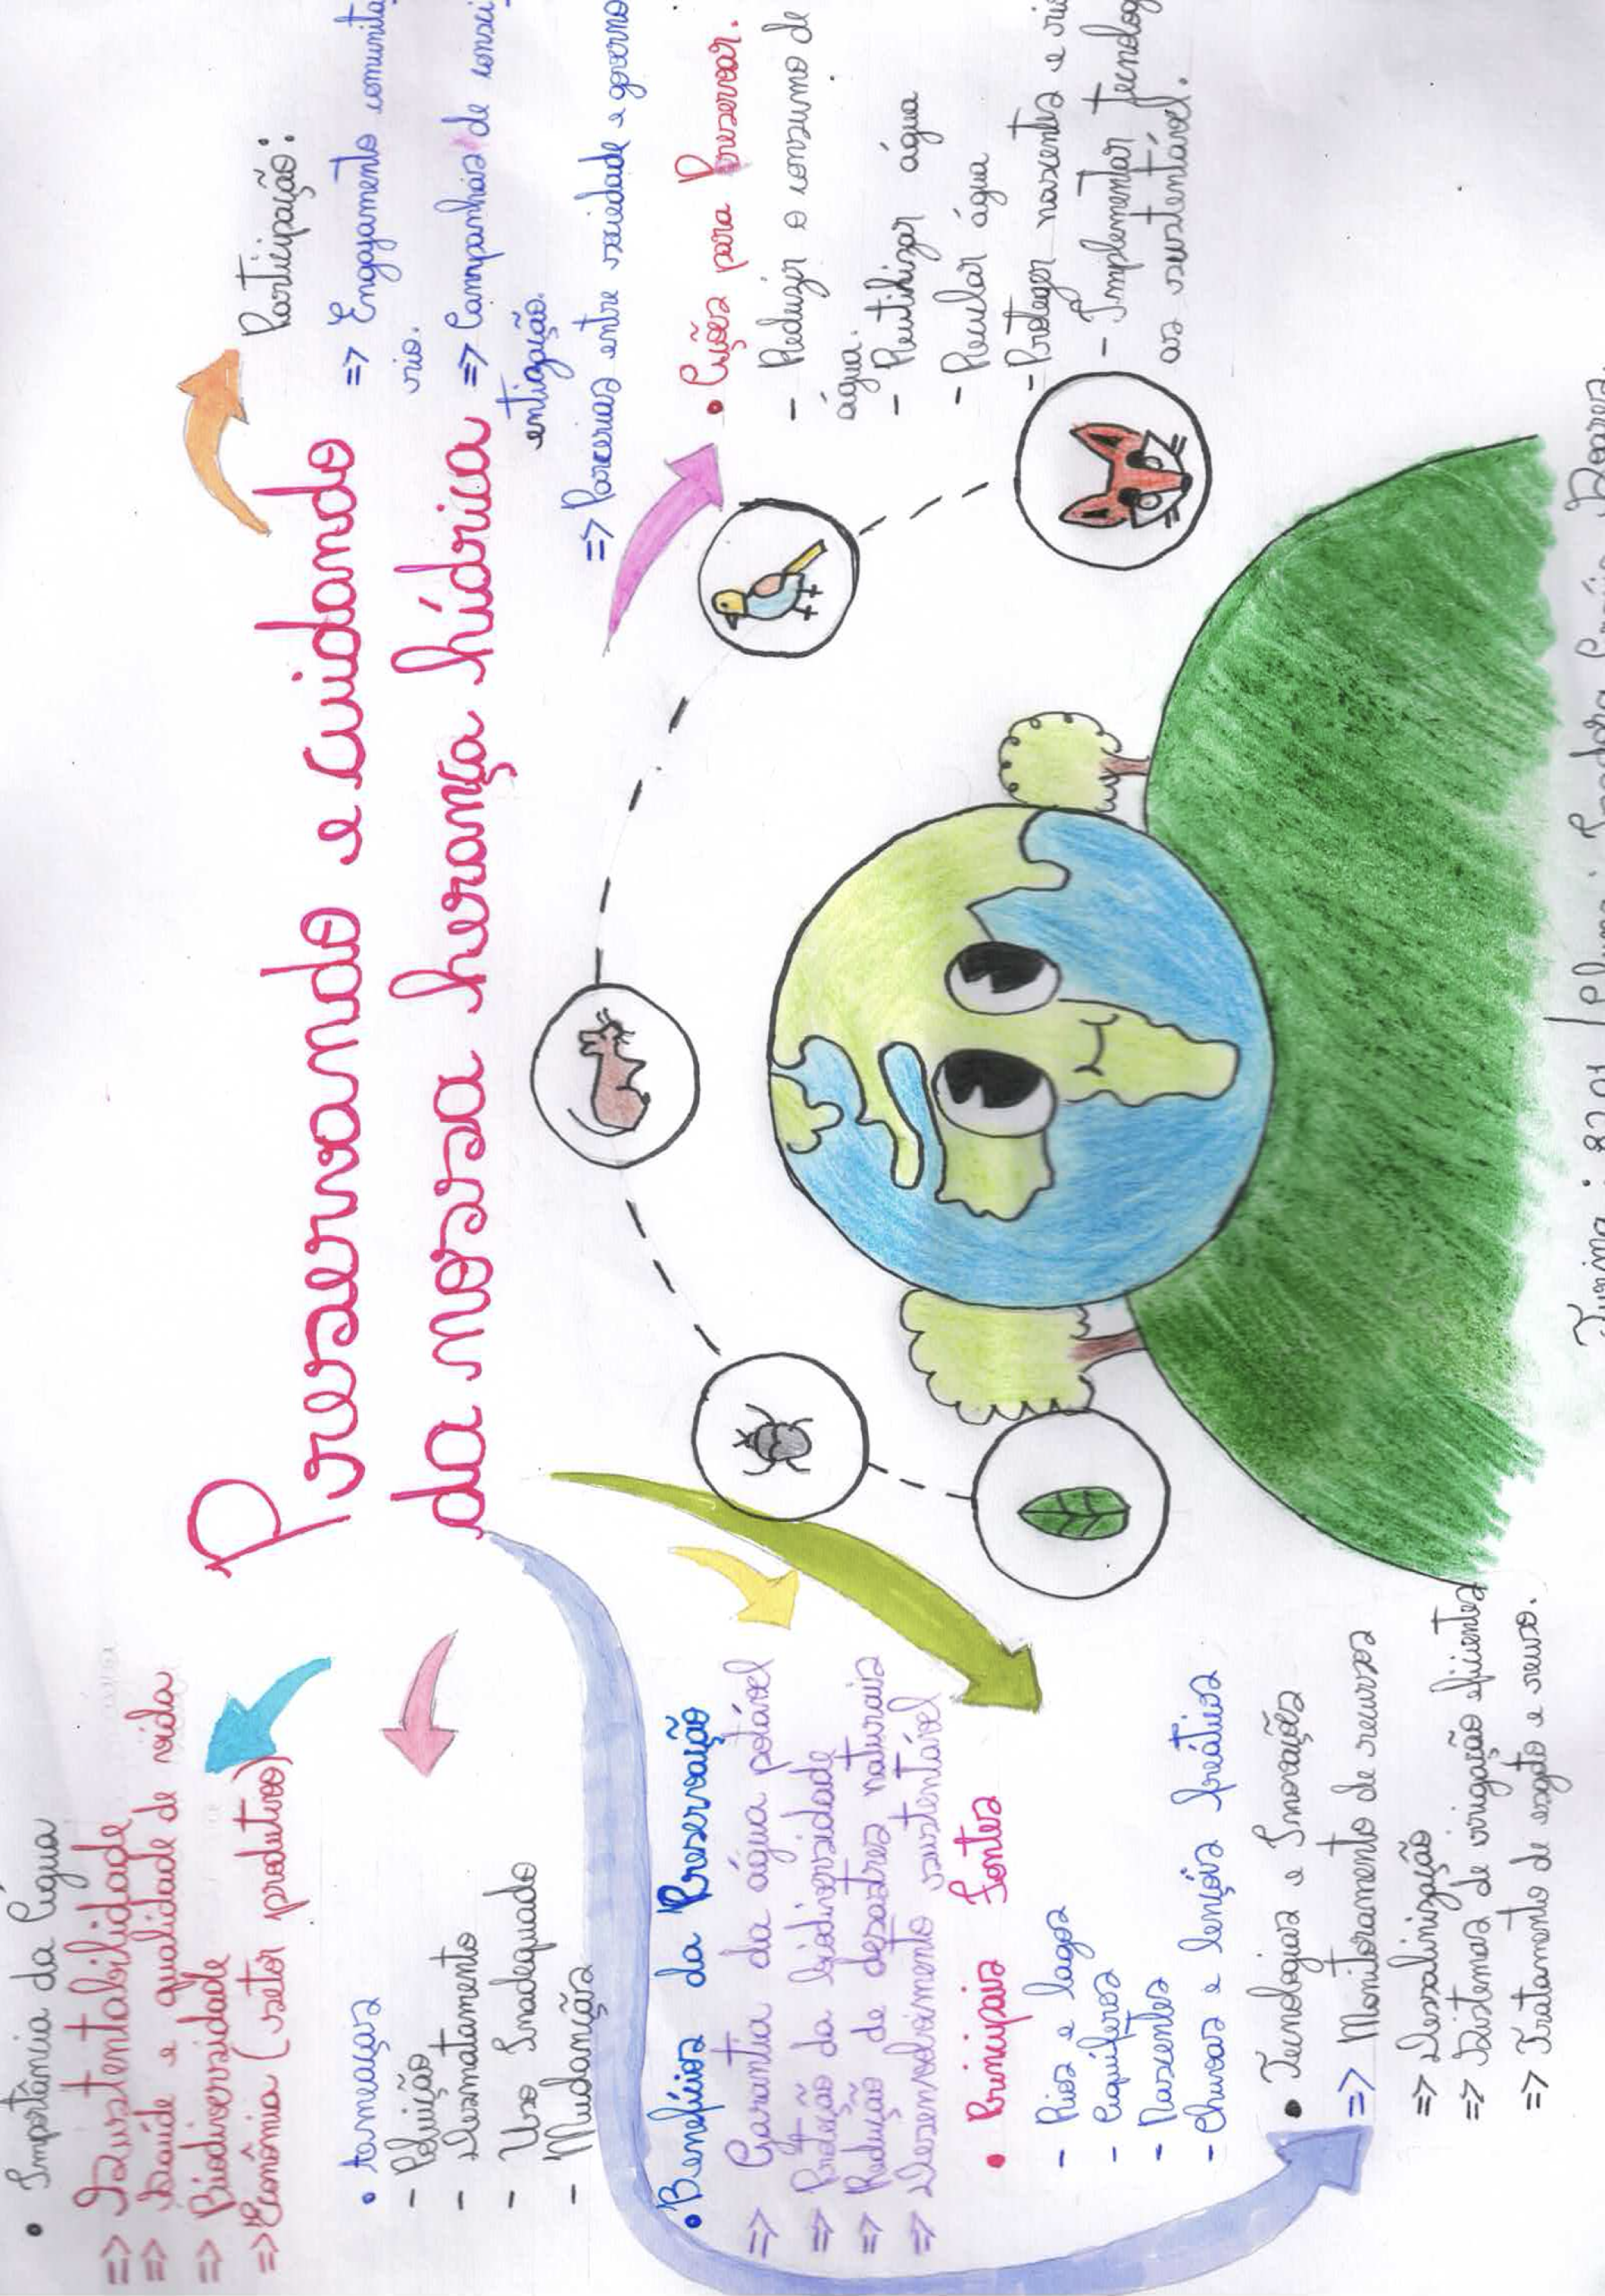 Preservando e cuidando
da nossa herança hídrica
• Importância da Água
=> Sustentabilidade
=> Saúde e qualidade de vida
=> Biodiversidade
=> Econômia (setor produtivo)
• Ameaças
- Poluição
- Desmatamento
- Uso Inadequado
- Mudanças
• Benefícios da Preservação
=> Garantia da água potável
=> Proteção da biodiversidade
=> Redução de desastres naturais
=> Desenvolvimento sustentável
• Principais Fontes
- Rios e lagos
- Aquíferos
- Nascentes
- Chuvas e lençóis freáticos
• Tecnologias e Inovações
=> Monitoramento de recursos
=> Dessalinização
=> Sistemas de irrigação eficientes
=> Tratamento de esgoto e reuso.
Participação:
=> Engajamento comunitá
rio.
=> Campanhas de consci
entização.
=> Parcerias entre sociedade e governo
• Ações para Preservar.
- Reduzir o consumo de
água.
- Reutilizar água
- Recular água
- Proteger nascentes e
- Implementar tecnolog
as sustentável.
Turma: 8201 / Aluna: Soares.